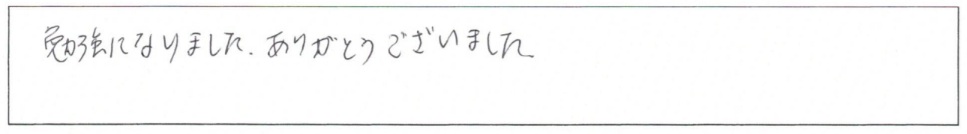 勉強になりました。ありがとうございました